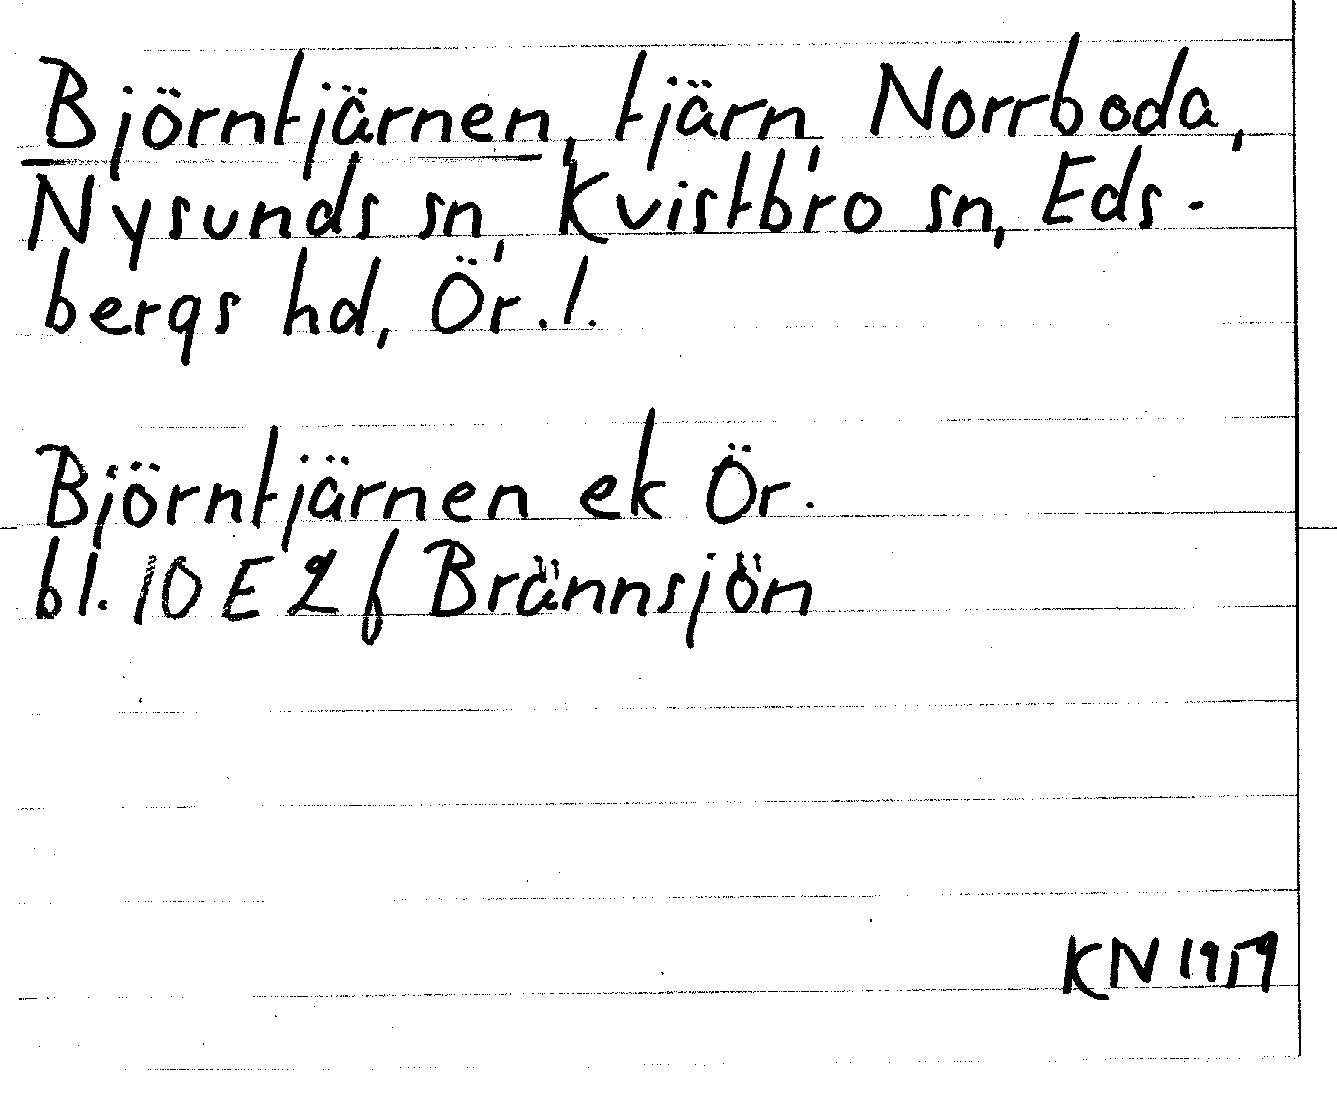 Björntjärnen, tjärn, Norrboda,
Nysunds sn, Kvistbro sn, Eds-
bergs hd, Ör. l.
Björntjärnen ek Ör.
bl. 10 E 2 f Brännsjön
KN 1959